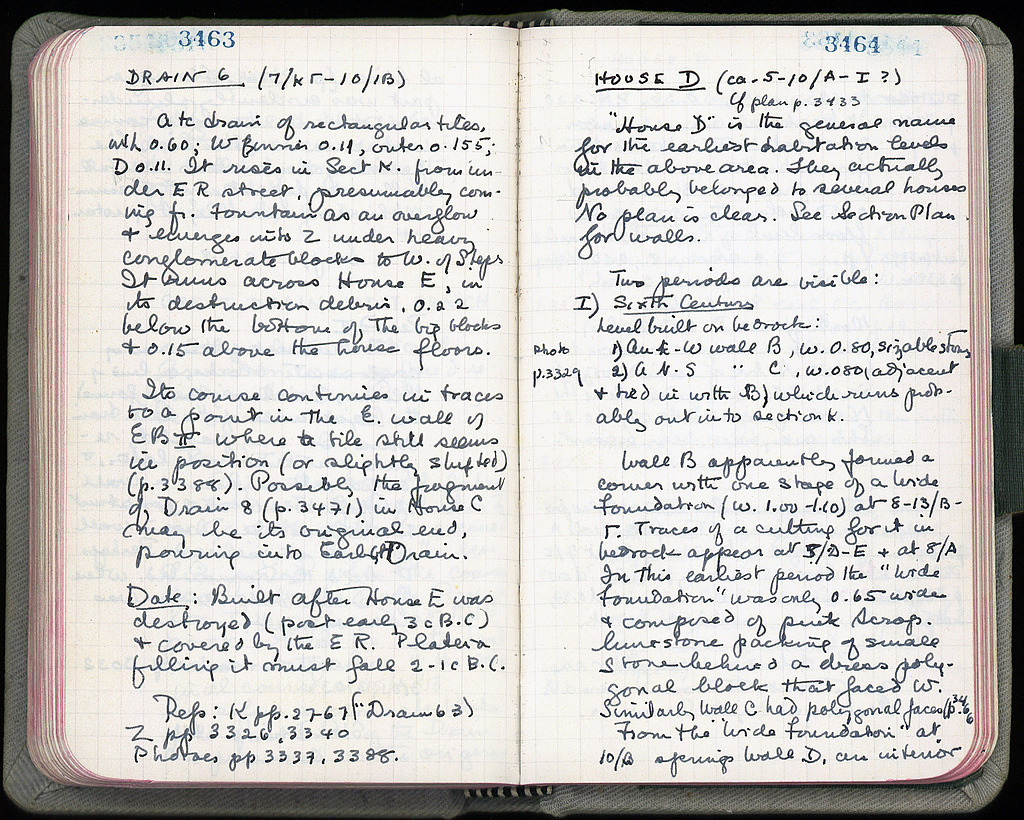 3463
DRAIN 6 (7/KΣ-10/IB)
A tc drain of rectangular tiles,
with 0.60; W f inner 0.11, outer 0.155;
D 0.11. It rises in Sect K. from un-
der E R street, presumably com-
ing fr. Fountain as an overflow
+ emerges into Z under heavy
conglomerate blocks to W. of Steps
It runs across House E, in
its destruction debris, 0.22
below the bottom of the big blocks
+ 0.15 above the house floors.
Its course continues in traces
to a point in the E. wall of
EB II where a tile still seems
in position (or slightly shifted)
(p. 3388). Possibly the fragment
of Drain 8 (p. 3471) in House C
may be its original end,
pouring into Early Drain.
Date: Built after House E was
destroyed (post early 3c B.C)
+ covered by the E R. Plateia
filling it must fall 2-1c B.C.
Refs: K pp. 2767 ("Drain 63)
Z pp 3326, 3340
Photoes pp 3337, 3388.
3464
HOUSE D (ca. 5-10/A-I ?)
Cf plan p. 3433
"House D" is the general name
for the earliest habitation levels
in the above area. They actually
probably belonged to several houses
No plan is clear. See Section Plan
for walls.
Two periods are visible:
I) Sixth Century
Level built on bedrock:
Photo
p. 3329
1) An E-W wall B, w. 0.80, sizable stones
2) A N-S " C, w. 080 (adjacent
+ tied in with B) which runs prob-
ably out into section K.
Wall B apparently formed a
corner with one stage of a Wide
Foundation (w. 1.00-1.10) at 8-13/B-
Γ. Traces of a cutting for it in
bedrock appear at /D-E + at 8/A
In this earliest period the "Wide
Foundation" was only 0.65 wide
+ composed of pink Acrop.
limestone packing of small
Stone behind a dress poly-
gonal block that faced W.
Similarly Wall C had polygonal faces (p. 3466
From the "Wide Foundation" at
10/B springs Wall D, an interior